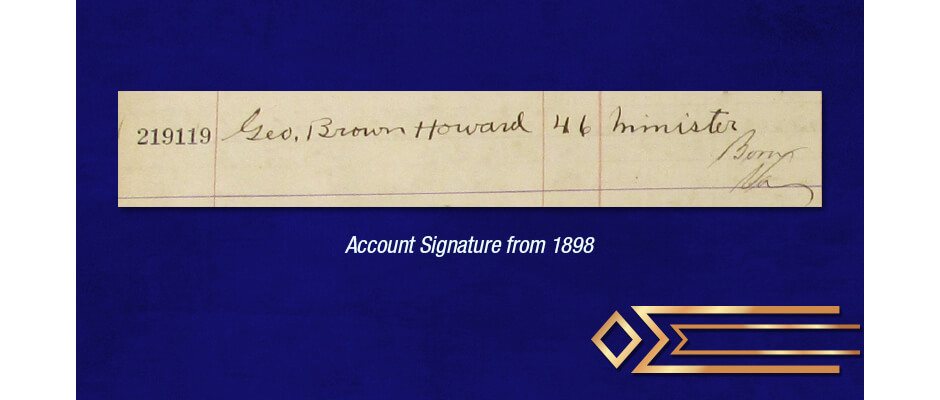 219119 Geo. Brown Howard 46 Minister
Va
Account Signature from 1898